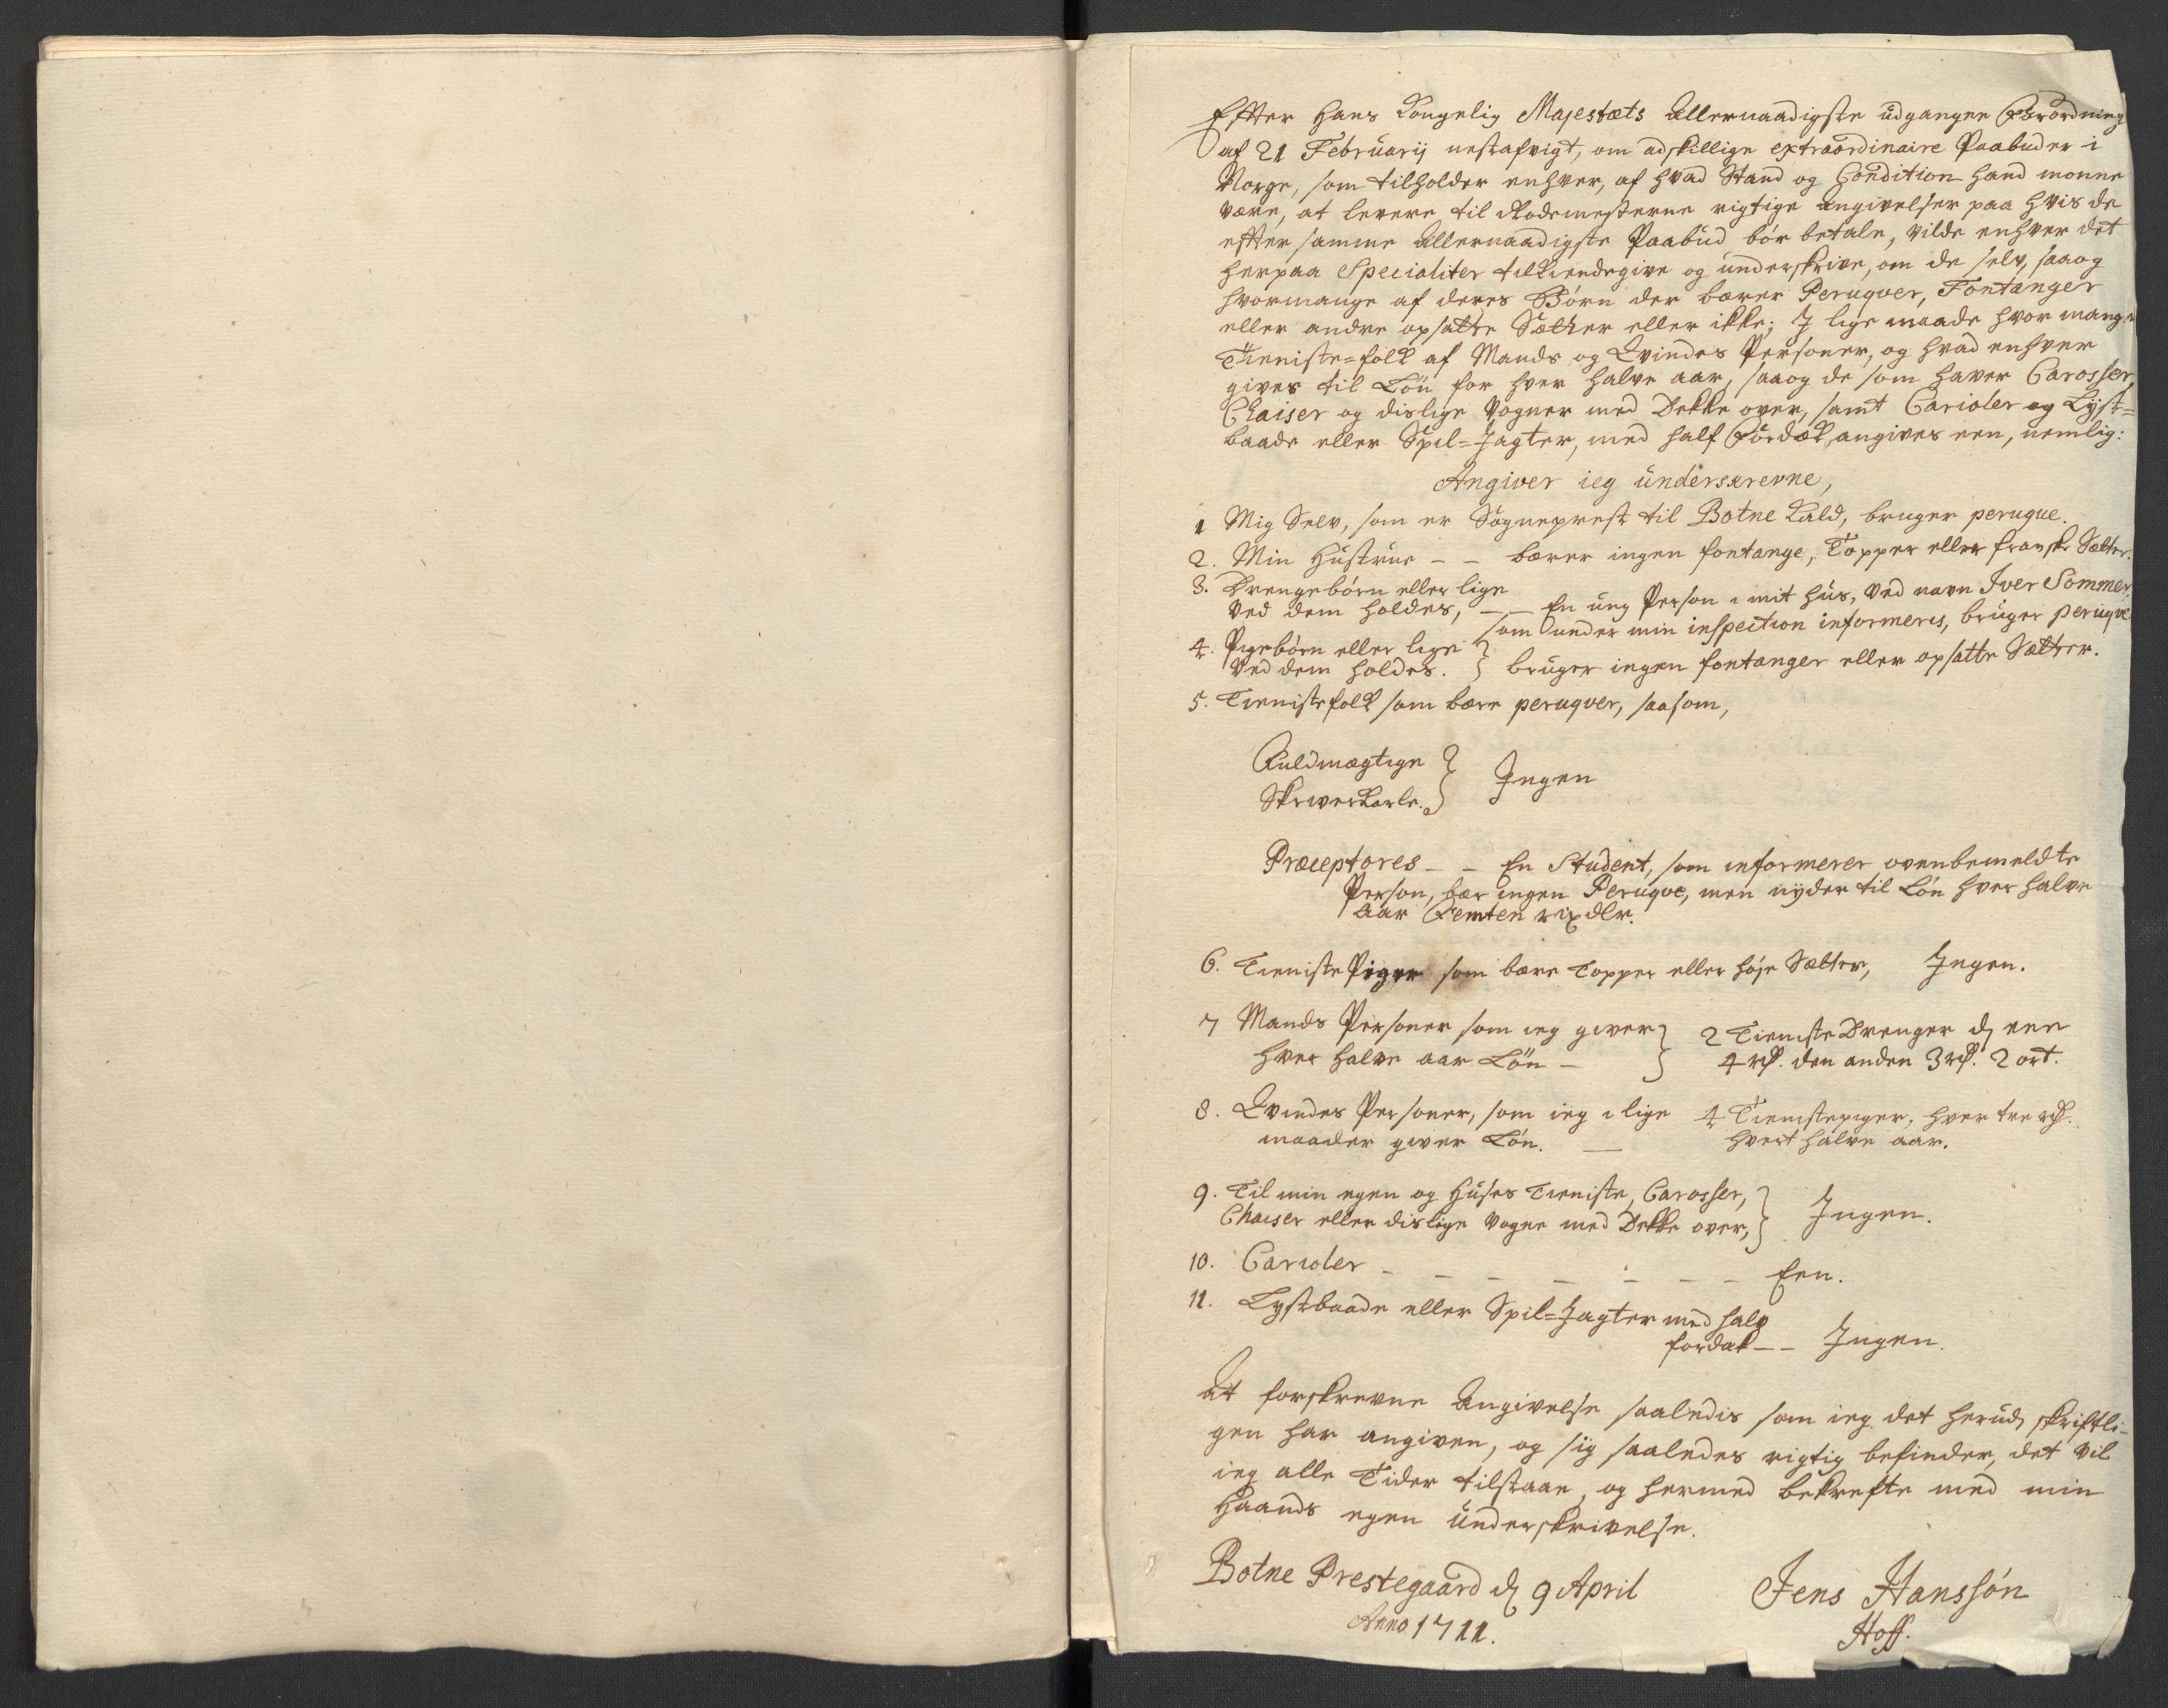 Effter Hans Kongelig Majestæts Allernaadigste udgangne Forordning
af 21 Februarij nestafvigt, om adskillige extraordinaire Paabuder i
Norge, som tilholder enhver, af hvad Stand og Condition hand monne
være, at levere til Rodemesterne rigtige Angivelser paa hvis de
effter samme Allernaadigste Paabud bør betale, vilde enhver det
herpaa Specialiter tilkiendegive og underskrive, om de selv, saaog
hvormange af deres Børn der bærer Peruqver, Fontanger
eller andre opsatte Sætter eller ikke; I lige maade hvor mange
Tieniste-folk af Mands og Qvindes Personer, og hvad enhver
gives til Løn for hver halve aar, saaog de som haver Carosser,
Chaiser og dislige Vogner med Dekke over, samt Carioler og Lyst-
baade eller Spil-Jagter, med half Fordæk, angives een, nemlig:
Angiver ieg underskrevne,
1 Mig Selv, som er Sogneprest til Botne Kald, bruger peruque.
2. Min Hustrue - - bærer ingen fontange, Topper eller franske Sætter.
3. Drengebørn eller lige
ved dem holdes, - - En ung Person i mit huus, ved navn Iver Sommer,
som under min inspection informeres, bruger peruqve
4. Pigebørn eller lige
ved dem holdes. } bruger ingen fontanger eller opsatte Sætter.
5. Tienistefolk som bære peruqver, saasom,
Fuldmægtige
Skriverkarle. } Ingen
Præceptores - - En Student, som informerer ovenbemeldte
Person, bær ingen Peruqve, men nyder til Løn hver halve
Aar Femten rixdlr.
6. Tieniste Piger som bære Topper eller høje Sætter, Ingen.
7 Mands Personer som ieg giver } 2 Tieniste Drenger d. een
hver halve aar Løn - 4 rdr. den anden 3 rdr. 2 ort.
8. Qvindes Personer, som ieg i lige 4 Tienistepiger, hver tre rdr.
maader giver Løn. - hvert halve aar.
9. Til min egen og Huses Tieniste, Carosser,
Chaiser eller dislige Vogne med Dekke over, } Ingen.
10. Carioler - - - - - - - Een.
11. Lystbaade eller Spil-Jagter med halv
fordæk - - Ingen.
At forskrevne Angivelse saaledis som ieg det herud skriftli-
gen har angiven, og sig saaledes rigtig befinder, det vil
ieg alle Tider tilstaae, og hermed bekrefte med min
Haands egen underskrivelse.
Botne Prestegaard d. 9 April
Anno 1711.
Jens Hanssøn
Hoff.